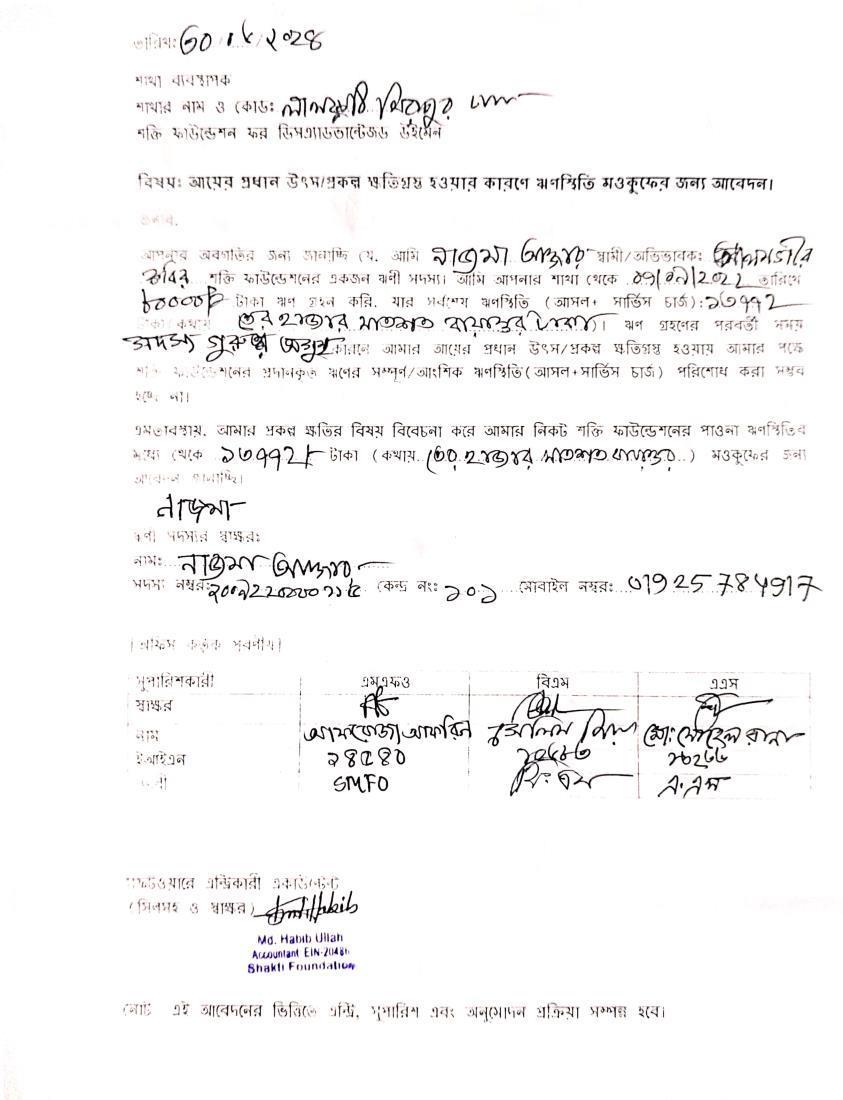 তারিখ: ৩০/ /২০২৪
শাখা ব্যবস্থাপক
শাখার নাম ও কোড:
শক্তি ফাউন্ডেশন ফর ডিসএ্যাডভান্টেজড উইমেন
বিষয়: আয়ের প্রধান উৎস/প্রকল্প ক্ষতিগ্রস্থ হওয়ার কারণে ঋণস্থিতি মওকুফের জন্য আবেদন।
জনাব,
আপনার অবগতির জন্য জানাচ্ছি যে, আমি নাজমা আক্তার স্বামী/অভিভাবক: আলমগীর
কবির শক্তি ফাউন্ডেশনের একজন ঋণী সদস্য। আমি আপনার শাখা থেকে তারিখে
৮০০০০/- টাকা ঋণ গ্রহন করি, যার সর্বশেষ ঋণস্থিতি (আসল+ সার্ভিস চার্জ): ১৩৭৭২
টাকা/কথায় তের হাজার সাতশত বায়াত্তর টাকা)। ঋণ গ্রহণের পরবর্তী সময়
সদস্য গুরুতর অসুস্থ কারনে আমার আয়ের প্রধান উৎস/প্রকল্প ক্ষতিগ্রস্থ হওয়ায় আমার পক্ষে
শক্তি ফাউন্ডেশনের প্রদানকৃত ঋণের সম্পূর্ণ/আংশিক ঋণস্থিতি(আসল+সার্ভিস চার্জ) পরিশোধ করা সম্ভব
হচ্ছে না।
এমতাবস্থায়, আমার প্রকল্প ক্ষতির বিষয় বিবেচনা করে আমার নিকট শক্তি ফাউন্ডেশনের পাওনা ঋণস্থিতির
মধ্যে থেকে ১৩৭৭২/- টাকা (কথায় তের হাজার সাতশত বায়াত্তর) মওকুফের জন্য
আবেদন জানাচ্ছি।
নাজমা
ঋণী সদস্যর স্বাক্ষর:
নাম: নাজমা আক্তার
সদস্য নম্বর: কেন্দ্র নং: ১০১ মোবাইল নম্বর: 01925784917
(অফিস কর্তৃক পূরণীয়)
সুপারিশকারী এমএফও বিএম এএস
স্বাক্ষর
নাম আফরোজা আফরিন মো: সোহেল রানা
ইআইএন ২৪৫৪০
পদবী SMFO বি: এম এ: এস
সফটওয়ারে এন্ট্রিকারী একাউন্টেন্ট
(সিলসহ ও স্বাক্ষর)
Md. Habib Ullah
Accountant EIN-20486
Shakti Foundation
নোট এই আবেদনের ভিত্তিতে এন্ট্রি, সুপারিশ এবং অনুমোদন প্রক্রিয়া সম্পন্ন হবে।